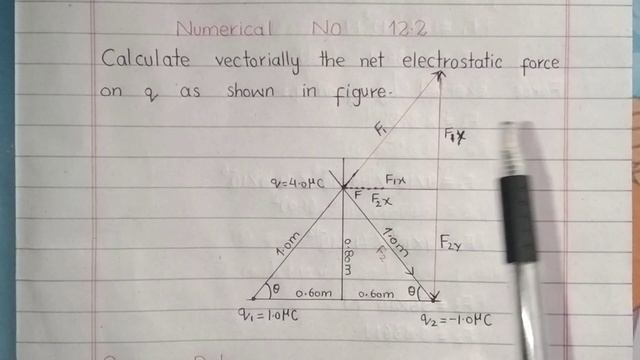 Numerical No 12.2
Calculate vectorially the net electrostatic force
on q as shown in figure.
F₁
F₁y
q=4.0μC
F₁x
F F₂x
1.0m
0.80m
1.0m
F₂
F₂y
θ 0.60m 0.60m θ
q₁=1.0μC q₂=-1.0μC